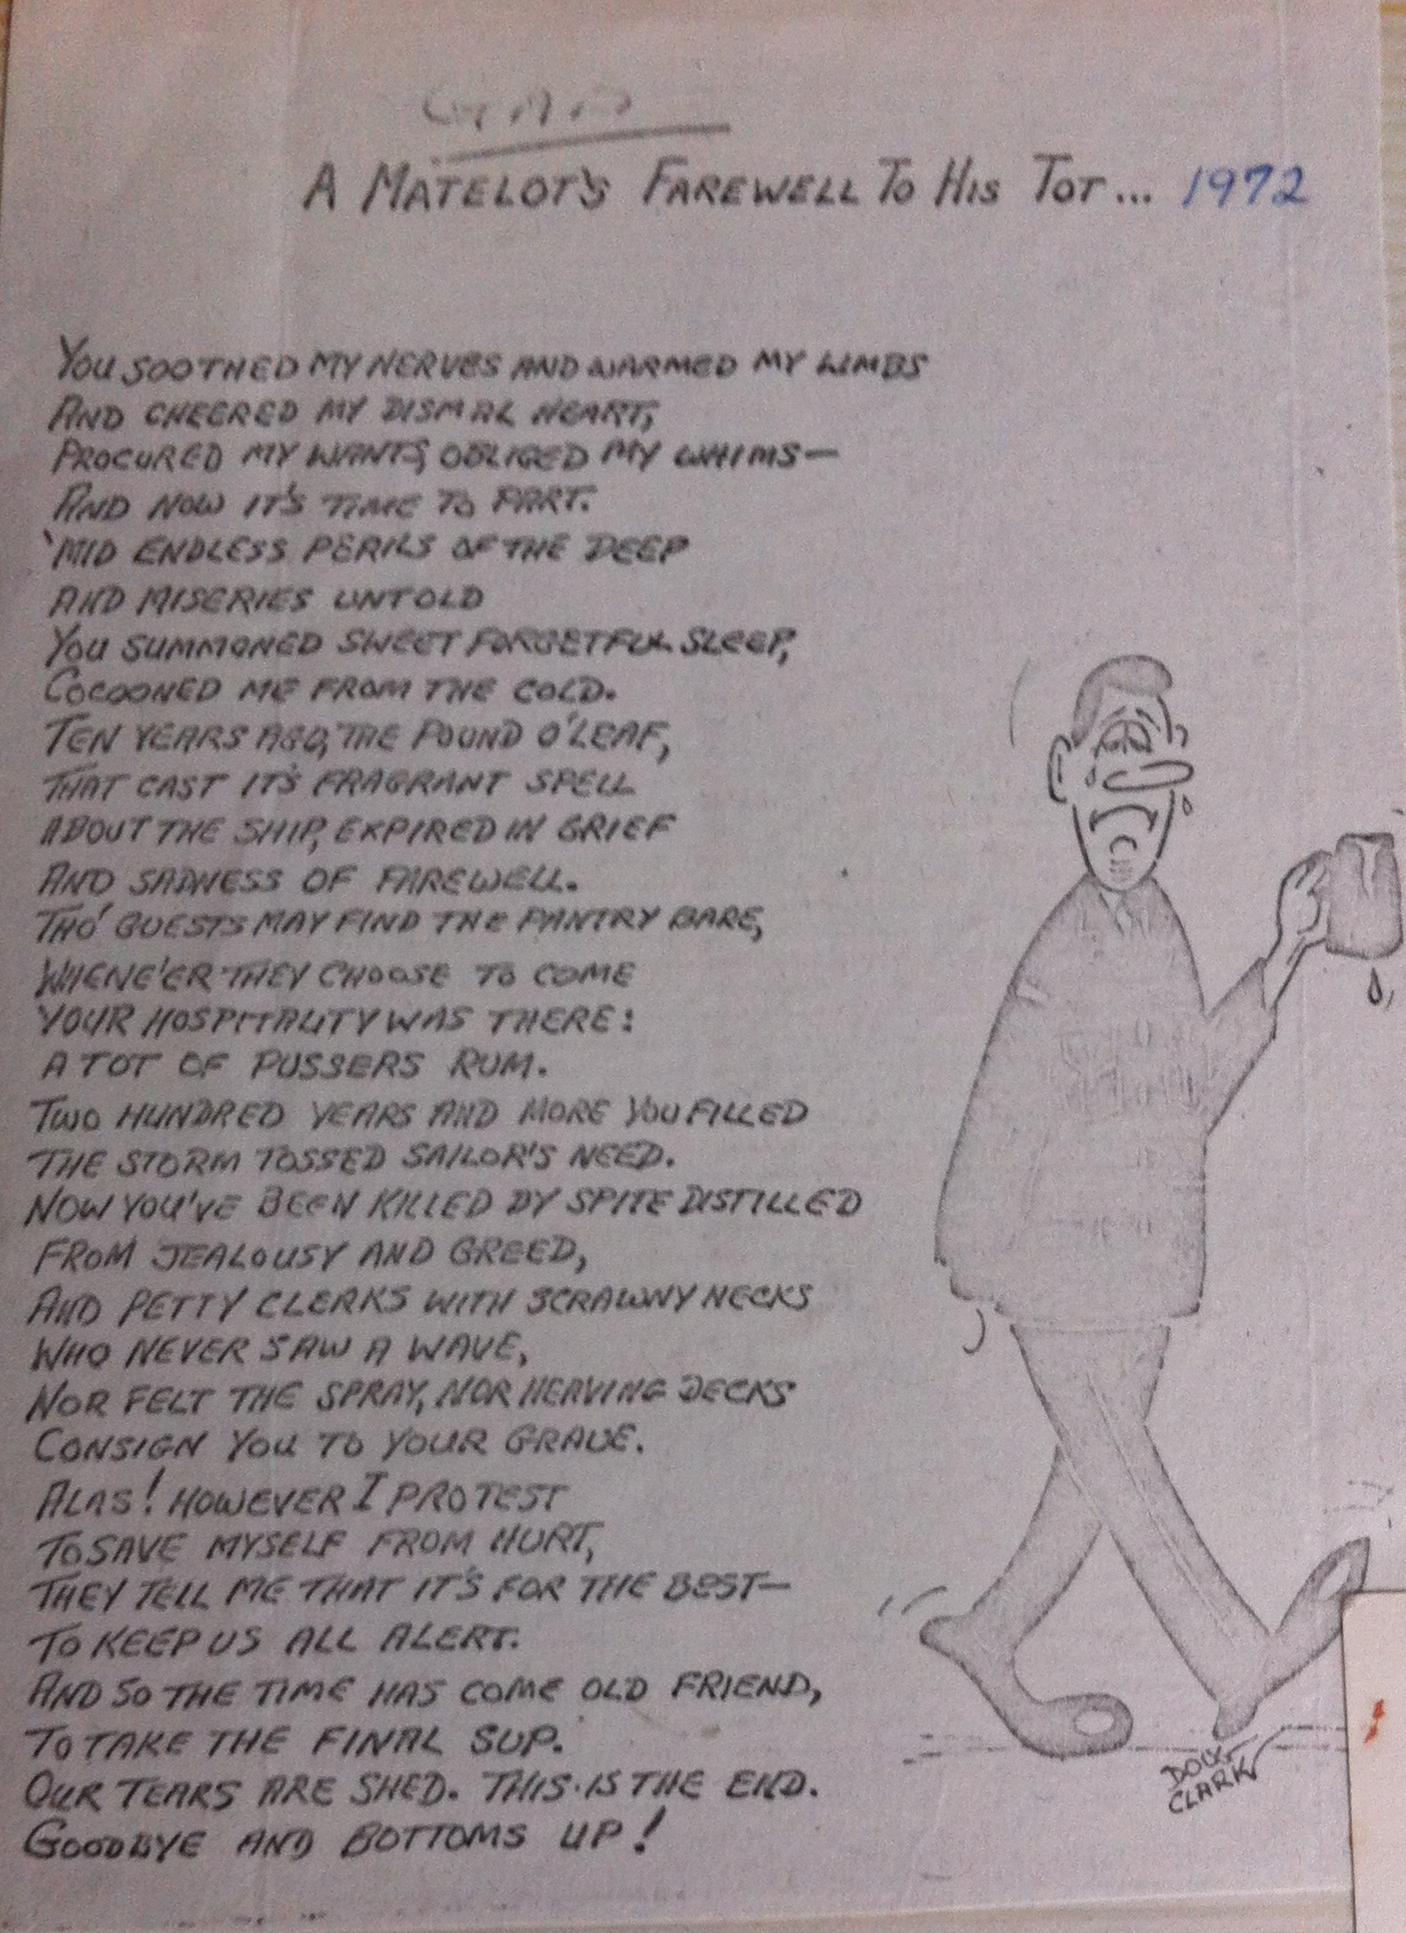 A MATELOT'S FAREWELL TO HIS TOT... 1972
YOU SOOTHED MY NERVES AND WARMED MY LIMBS
AND CHEERED MY DISMAL HEART,
PROCURED MY WANTS, OBLIGED MY WHIMS—
AND NOW IT'S TIME TO PART.
'MID ENDLESS PERILS OF THE DEEP
AND MISERIES UNTOLD
YOU SUMMONED SWEET FORGETFUL SLEEP,
COCOONED ME FROM THE COLD.
TEN YEARS AGO, THE POUND O'LEAF,
THAT CAST IT'S FRAGRANT SPELL
ABOUT THE SHIP, EXPIRED IN GRIEF
AND SADNESS OF FAREWELL.
THO' GUESTS MAY FIND THE PANTRY BARE,
WHENE'ER THEY CHOOSE TO COME
YOUR HOSPITALITY WAS THERE:
A TOT OF PUSSERS RUM.
TWO HUNDRED YEARS AND MORE YOU FILLED
THE STORM TOSSED SAILOR'S NEED.
NOW YOU'VE BEEN KILLED BY SPITE DISTILLED
FROM JEALOUSY AND GREED,
AND PETTY CLERKS WITH SCRAWNY NECKS
WHO NEVER SAW A WAVE,
NOR FELT THE SPRAY, NOR HEAVING DECKS
CONSIGN YOU TO YOUR GRAVE.
ALAS! HOWEVER I PROTEST
TO SAVE MYSELF FROM HURT,
THEY TELL ME THAT IT'S FOR THE BEST—
TO KEEP US ALL ALERT.
AND SO THE TIME HAS COME OLD FRIEND,
TO TAKE THE FINAL SUP.
OUR TEARS ARE SHED. THIS IS THE END.
GOODBYE AND BOTTOMS UP!
CLARK